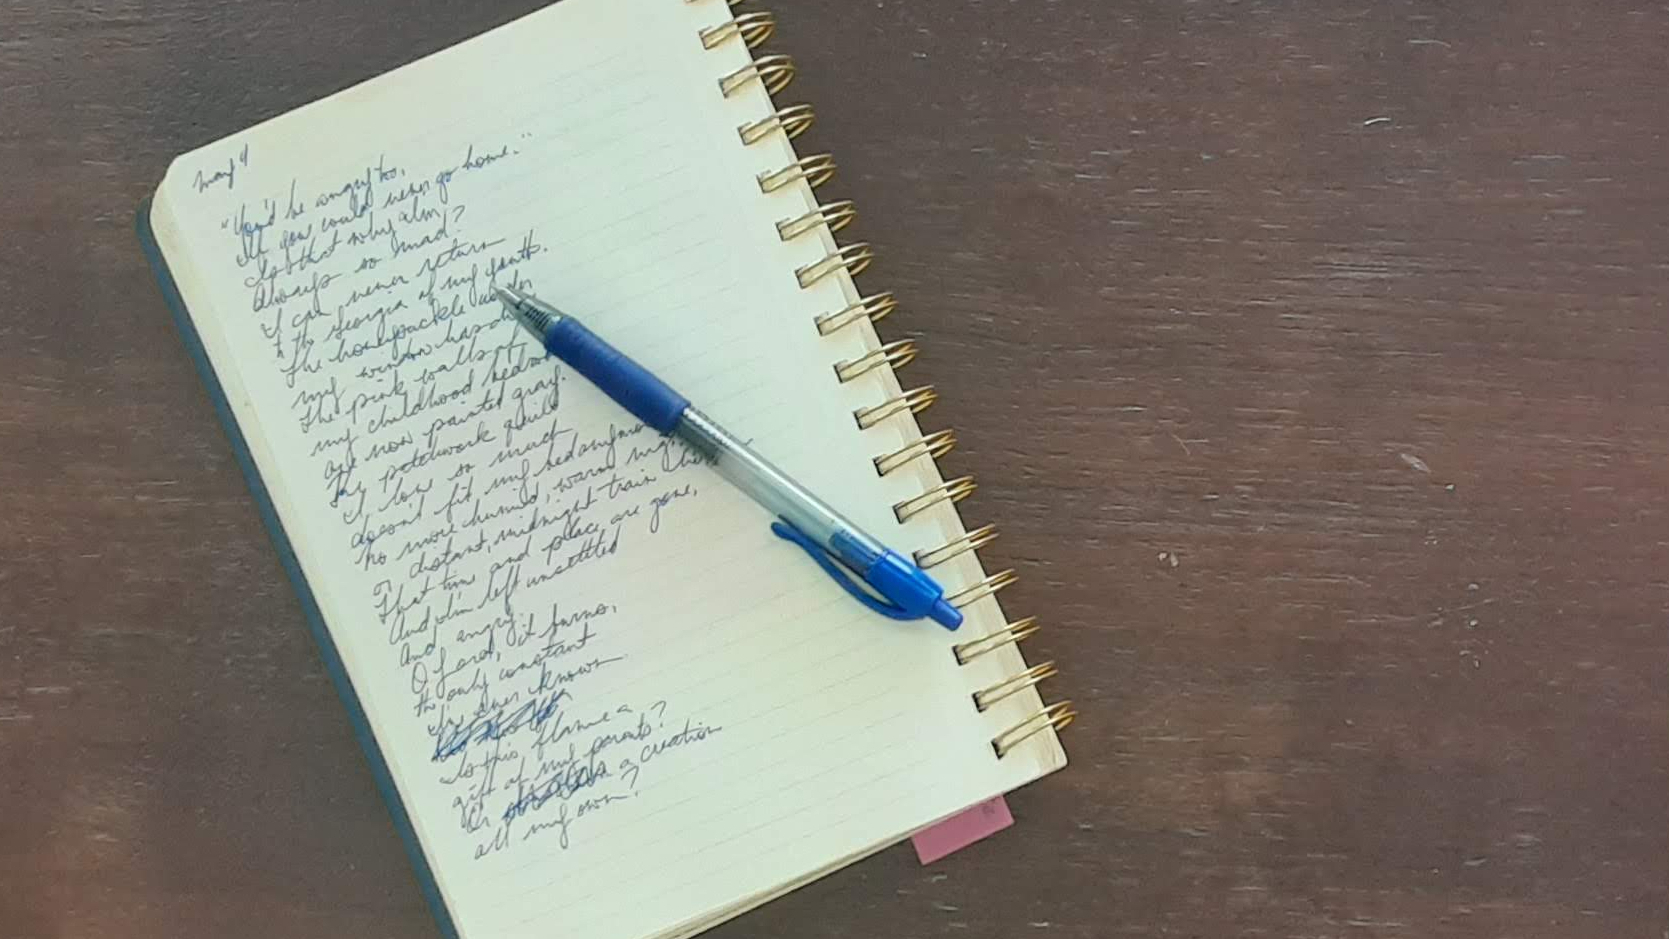 May 4
"You'd be angry too,
If you could never go home."
Is that why I'm
Always so mad?
I can never return
to the Georgia of my youth.
The honeysuckle under
my window has
The pink walls of
my childhood bedroom
are now painted gray.
The patchwork quilt
I love so much
doesn't fit my bed anymore
No more humid, warm
or distant, midnight train
That time and place are gone,
And I'm left unsettled
And angry.
O Lord, it burns,
the only constant
I've ever known.
Is this flame a
gift of my parents?
Or a creation
all my own?